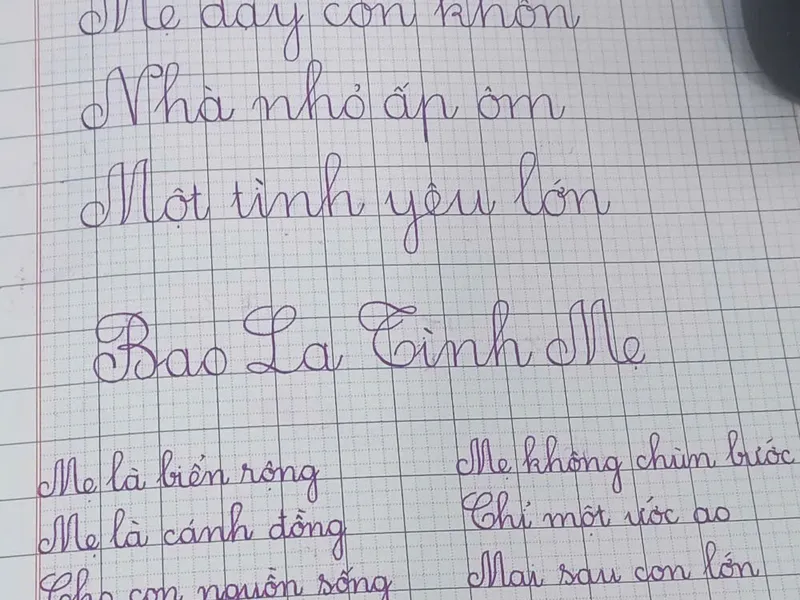 Mẹ dạy con khôn
Nhà nhỏ ấp ôm
Một tình yêu lớn
Bao La Tình Mẹ
Mẹ là biển rộng
Mẹ là cánh đồng
Cho con nguồn sống
Mẹ không chùn bước
Chỉ một ước ao
Mai sau con lớn